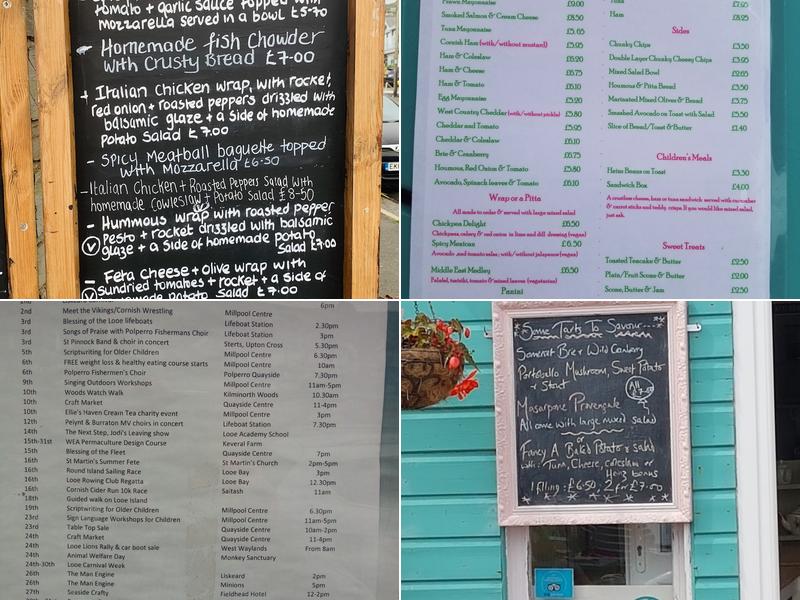 tomato + garlic sauce topped with
mozzarella served in a bowl £5-70
Homemade fish Chowder
with crusty Bread £7-00
+ Italian chicken wrap, with rocket,
red onion + roasted peppers drizzled with
balsamic glaze + a side of homemade
Potato Salad £7.00
- Spicy Meatball baguette topped
with Mozzarella £6-50
- Italian Chicken + Roasted Peppers Salad with
homemade Cowleslaw + Potato Salad £8-50
- Hummous wrap with roasted pepper
V pesto + rocket drizzled with balsamic
glaze + a side of homemade potato
Salad £7.00
- Feta cheese + olive wrap with
V Sundried tomatoes + rocket + a side of
homemade Potato Salad £7.00
Prawn Mayonnaise £9.00
Smoked Salmon & Cream Cheese £8.50
Tuna Mayonnaise £5.65
Cornish Ham (with/without mustard) £5.95
Ham & Coleslaw £6.20
Ham & Cheese £6.75
Ham & Tomato £6.10
Egg Mayonnaise £5.20
West Country Cheddar (with/without pickle) £5.80
Cheddar and Tomato £5.95
Cheddar & Coleslaw £6.10
Brie & Cranberry £6.75
Houmous, Red Onion & Tomato £5.80
Avocado, Spinach leaves & Tomato £6.10
Wrap or a Pitta
All made to order & served with large mixed salad
Chickpea Delight £6.50
Chickpeas, celery & red onion in lime and dill dressing (vegan)
Spicy Mexican £6.50
Avocado and tomato salsa; with/without jalapenos (vegan)
Middle East Medley £6.50
Falafel, tsatsiki, tomato & mixed leaves (vegetarian)
Panini
Tuna £7.95
Ham £8.95
Sides
Chunky Chips £3.50
Double Layer Chunky Cheesy Chips £3.95
Mixed Salad Bowl £2.65
Houmous & Pitta Bread £3.50
Marinated Mixed Olives & Bread £3.75
Smashed Avocado on Toast with Salad £5.50
Slice of Bread/Toast & Butter £1.40
Children's Meals
Heinz Beans on Toast £3.50
Sandwich Box £4.00
A crustless cheese, ham or tuna sandwich served with cucumber
& carrot sticks and teddy crisps. If you would like mixed salad,
just ask.
Sweet Treats
Toasted Teacake & Butter £2.50
Plain/Fruit Scone & Butter £2.00
Scone, Butter & Jam £2.50
6pm
2nd Meet the Vikings/Cornish Wrestling Millpool Centre
3rd Blessing of the Looe lifeboats Lifeboat Station 2.30pm
3rd Songs of Praise with Polperro Fishermens Choir Lifeboat Station 3pm
3rd St Pinnock Band & choir in concert Sterts, Upton Cross 5.30pm
5th Scriptwriting for Older Children Millpool Centre 6.30pm
6th FREE weight loss & healthy eating course starts Millpool Centre 10am
6th Polperro Fishermen's Choir Polperro Quayside 7.30pm
9th Singing Outdoors Workshops Millpool Centre 11am-5pm
10th Woods Watch Walk Kilminorth Woods 10.30am
10th Craft Market Quayside Centre 11-4pm
10th Ellie's Haven Cream Tea charity event Millpool Centre 3pm
12th Pelynt & Burraton MV choirs in concert Lifeboat Station 7.30pm
14th The Next Step, Jodi's Leaving show Looe Academy School
15th-31st WEA Permaculture Design Course Keveral Farm
15th Blessing of the Fleet Quayside Centre 7pm
16th St Martin's Summer Fete St Martin's Church 2pm-5pm
16th Round Island Sailing Race Looe Bay 3pm
16th Looe Rowing Club Regatta Looe Bay 12.30pm
16th Cornish Cider Run 10k Race Saltash 11am
18th Guided walk on Looe Island
19th Scriptwriting for Older Children Millpool Centre 6.30pm
23rd Sign Language Workshops for Children Millpool Centre 11am-5pm
23rd Table Top Sale Quayside Centre 10am-2pm
24th Craft Market Quayside Centre 11-4pm
24th Looe Lions Rally & car boot sale West Waylands From 8am
24th Animal Welfare Day Monkey Sanctuary
24th-30th Looe Carnival Week
26th The Man Engine Liskeard 2pm
26th The Man Engine Minions 5pm
27th Seaside Crafty Fieldhead Hotel 12-2pm
Some Tarts To Savour----
Somerset Brie & Wild Cranberry
Portobello Mushroom, Sweet Potato
& Stout
All £7.50
Mascarpone Provençale
All come with large mixed salad
or
Fancy A Baked Potato & salad
with: Tuna, Cheese, coleslaw or
Heinz beans
1 filling: £6.50, 2 for £7.00